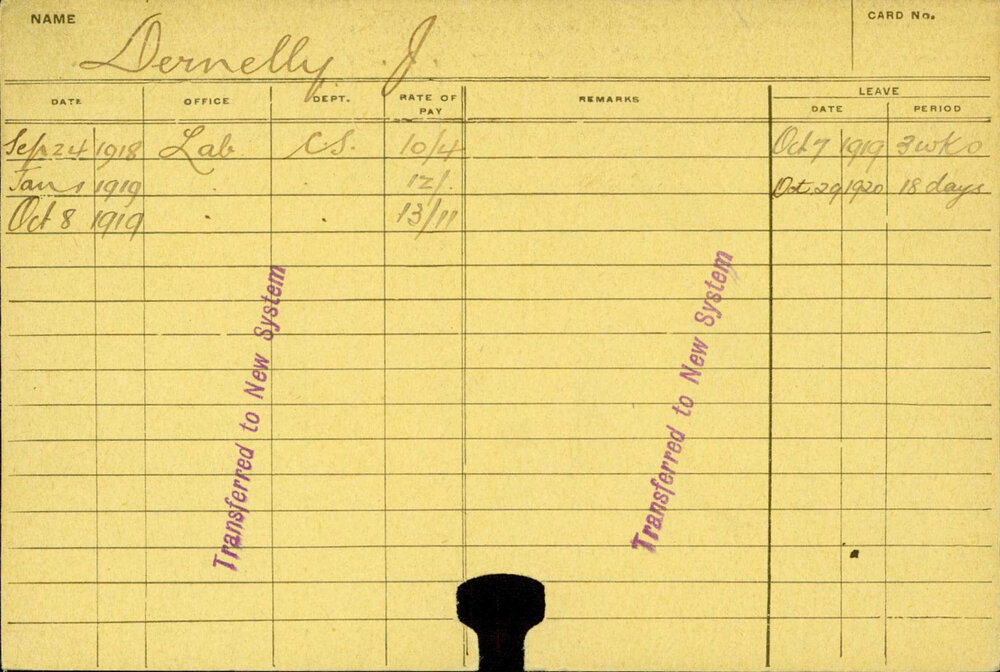 NAME Dernelly J. CARD No.
DATE OFFICE DEPT. RATE OF PAY REMARKS LEAVE
DATE PERIOD
Sep 24 1918 Lab C.S. 10/4 Oct 7 1919 3 wks
Jan 1 1919 . 12/. Oct 29 1920 18 days
Oct 8 1919 . . 13/11
Transferred to New System
Transferred to New System